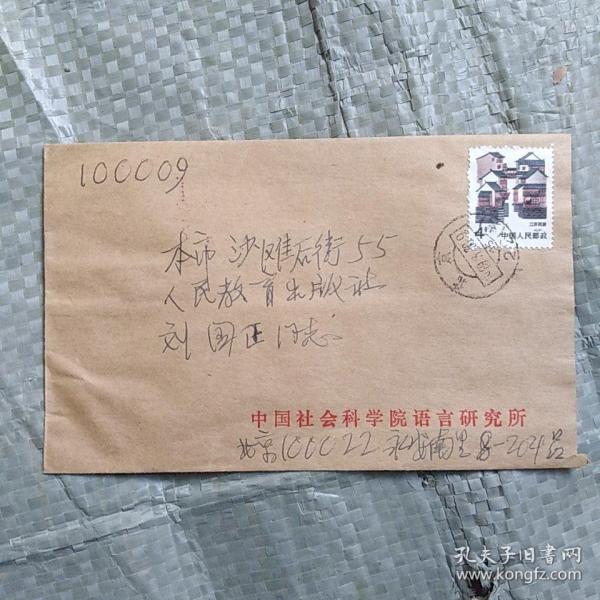 100009
本市 沙滩后街55
人民教育出版社
刘国正同志
4分
江苏民居
中国人民邮政
北京
中国社会科学院语言研究所
北京100022 永安南里8-204号
孔夫子旧书网
www.kongfz.com